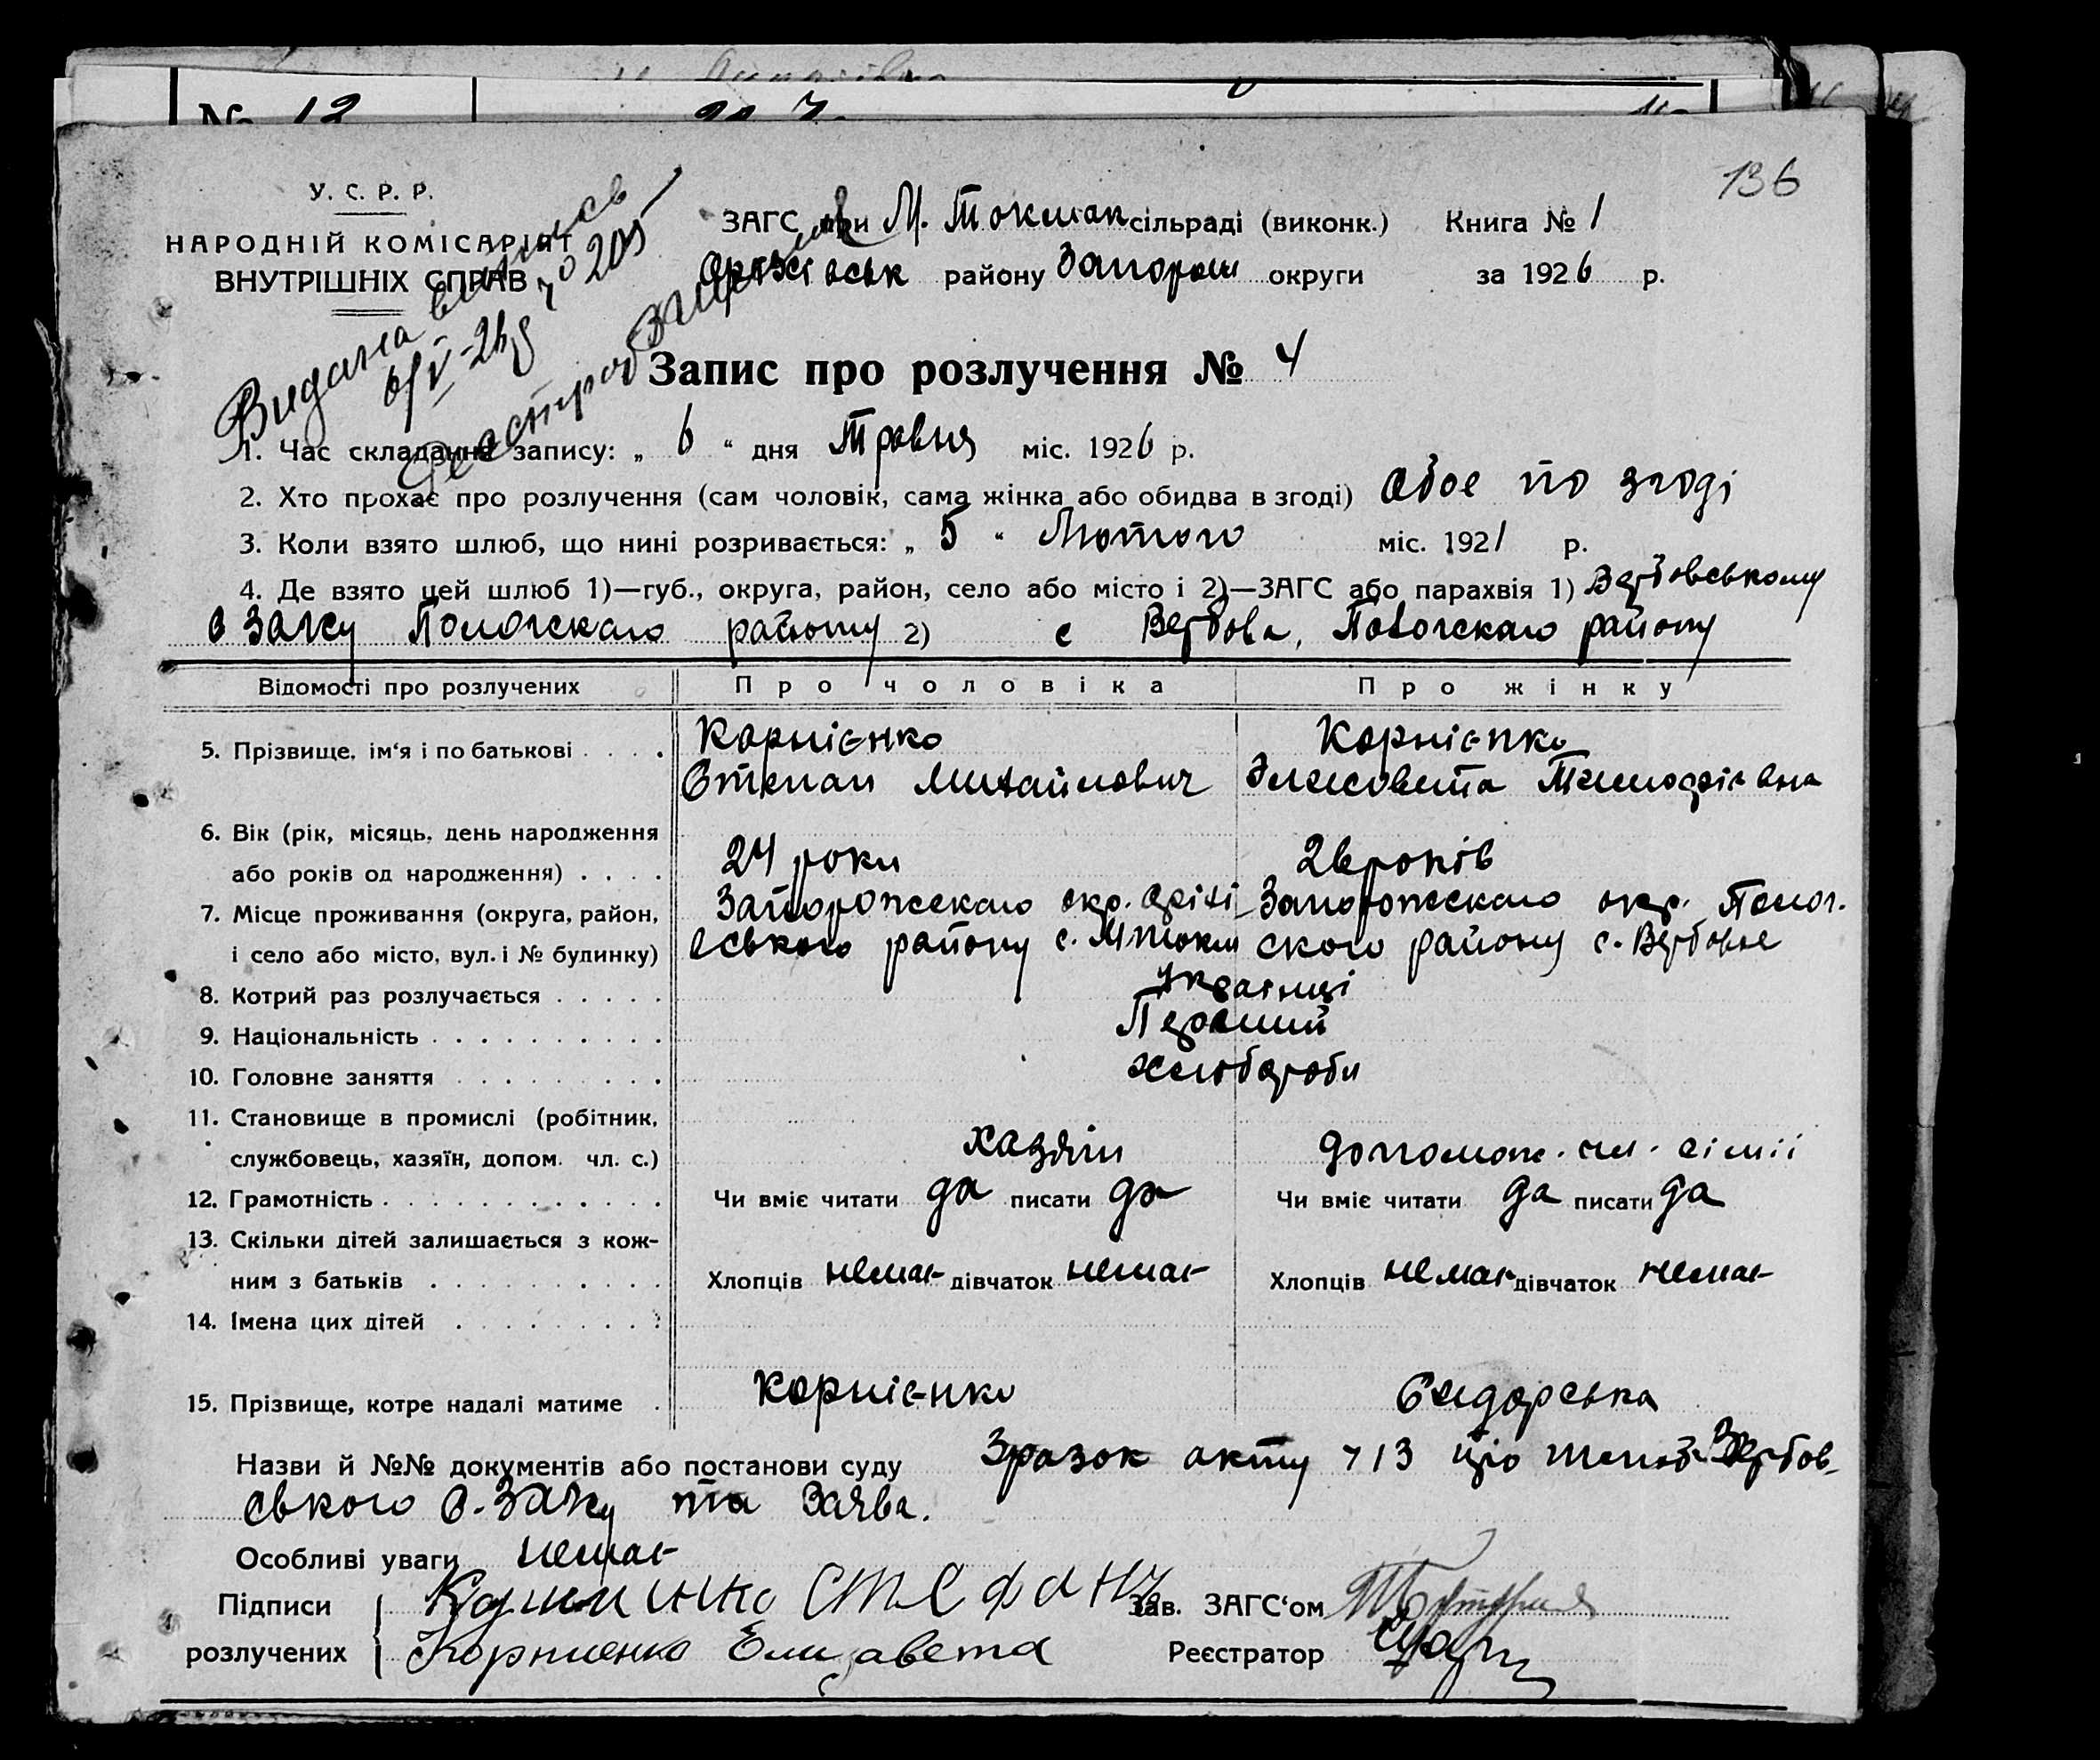 136
У. С. Р. Р.
НАРОДНІЙ КОМІСАРІЯТ
ВНУТРІШНІХ СПРАВ
Видана випись
6/V-26 р № 205
ЗАГС при М. Токмак сільраді (виконк.) Книга № 1
Оріхівськ району Запорож округи за 1926 р.
Запис про розлучення № 4
1. Час складання запису: „ 6 “ дня Травня міс. 1926 р.
2. Хто прохає про розлучення (сам чоловік, сама жінка або обидва в згоді) обоє по згоді
3. Коли взято шлюб, що нині розривається: „ 5 “ Лютого міс. 1921 р.
4. Де взято цей шлюб 1)—губ., округа, район, село або місто і 2)—ЗАГС або парахвія 1) Вербовському
в Загсу Пологскаго району 2) с Вербова, Пологскаго району
Відомості про розлучених Про чоловіка Про жінку
5. Прізвище, ім‘я і по батькові . . . . Корнієнко Корнієнко
Степан Михайлович Элисовета Тимофіївна
6. Вік (рік, місяць, день народження
або років од народження) . . . . 24 роки 26 років
7. Місце проживання (округа, район, Запорожскаго окр. Оріхі- Запорожскаго окр. Полог.
і село або місто, вул. і № будинку) вського району с. М Токм ского району с. Вербове
8. Котрий раз розлучається . . . . . Українці
9. Національність . . . . . . . . . . Перший
10. Головне заняття . . . . . . . . . Хлібороби
11. Становище в промислі (робітник,
службовець, хазяїн, допом. чл. с.) хазяїн допомож. чл. сімії
12. Грамотність . . . . . . . . . . . . Чи вміє читати да писати да Чи вміє читати да писати да
13. Скільки дітей залишається з кож-
ним з батьків . . . . . . . . . . Хлопців немає дівчаток немає Хлопців немає дівчаток немає
14. Імена цих дітей . . . . . . . . .
15. Прізвище, котре надалі матиме . Корнієнко Сидорська
Назви й №№ документів або постанови суду Зразок акту № 13 про шлюб Вербов-
ського в. Загсу та Заява.
Особливі уваги немає
Підписи Стефан Зав. ЗАГС‘ом
розлучених Корниенко Елизавета Реєстратор